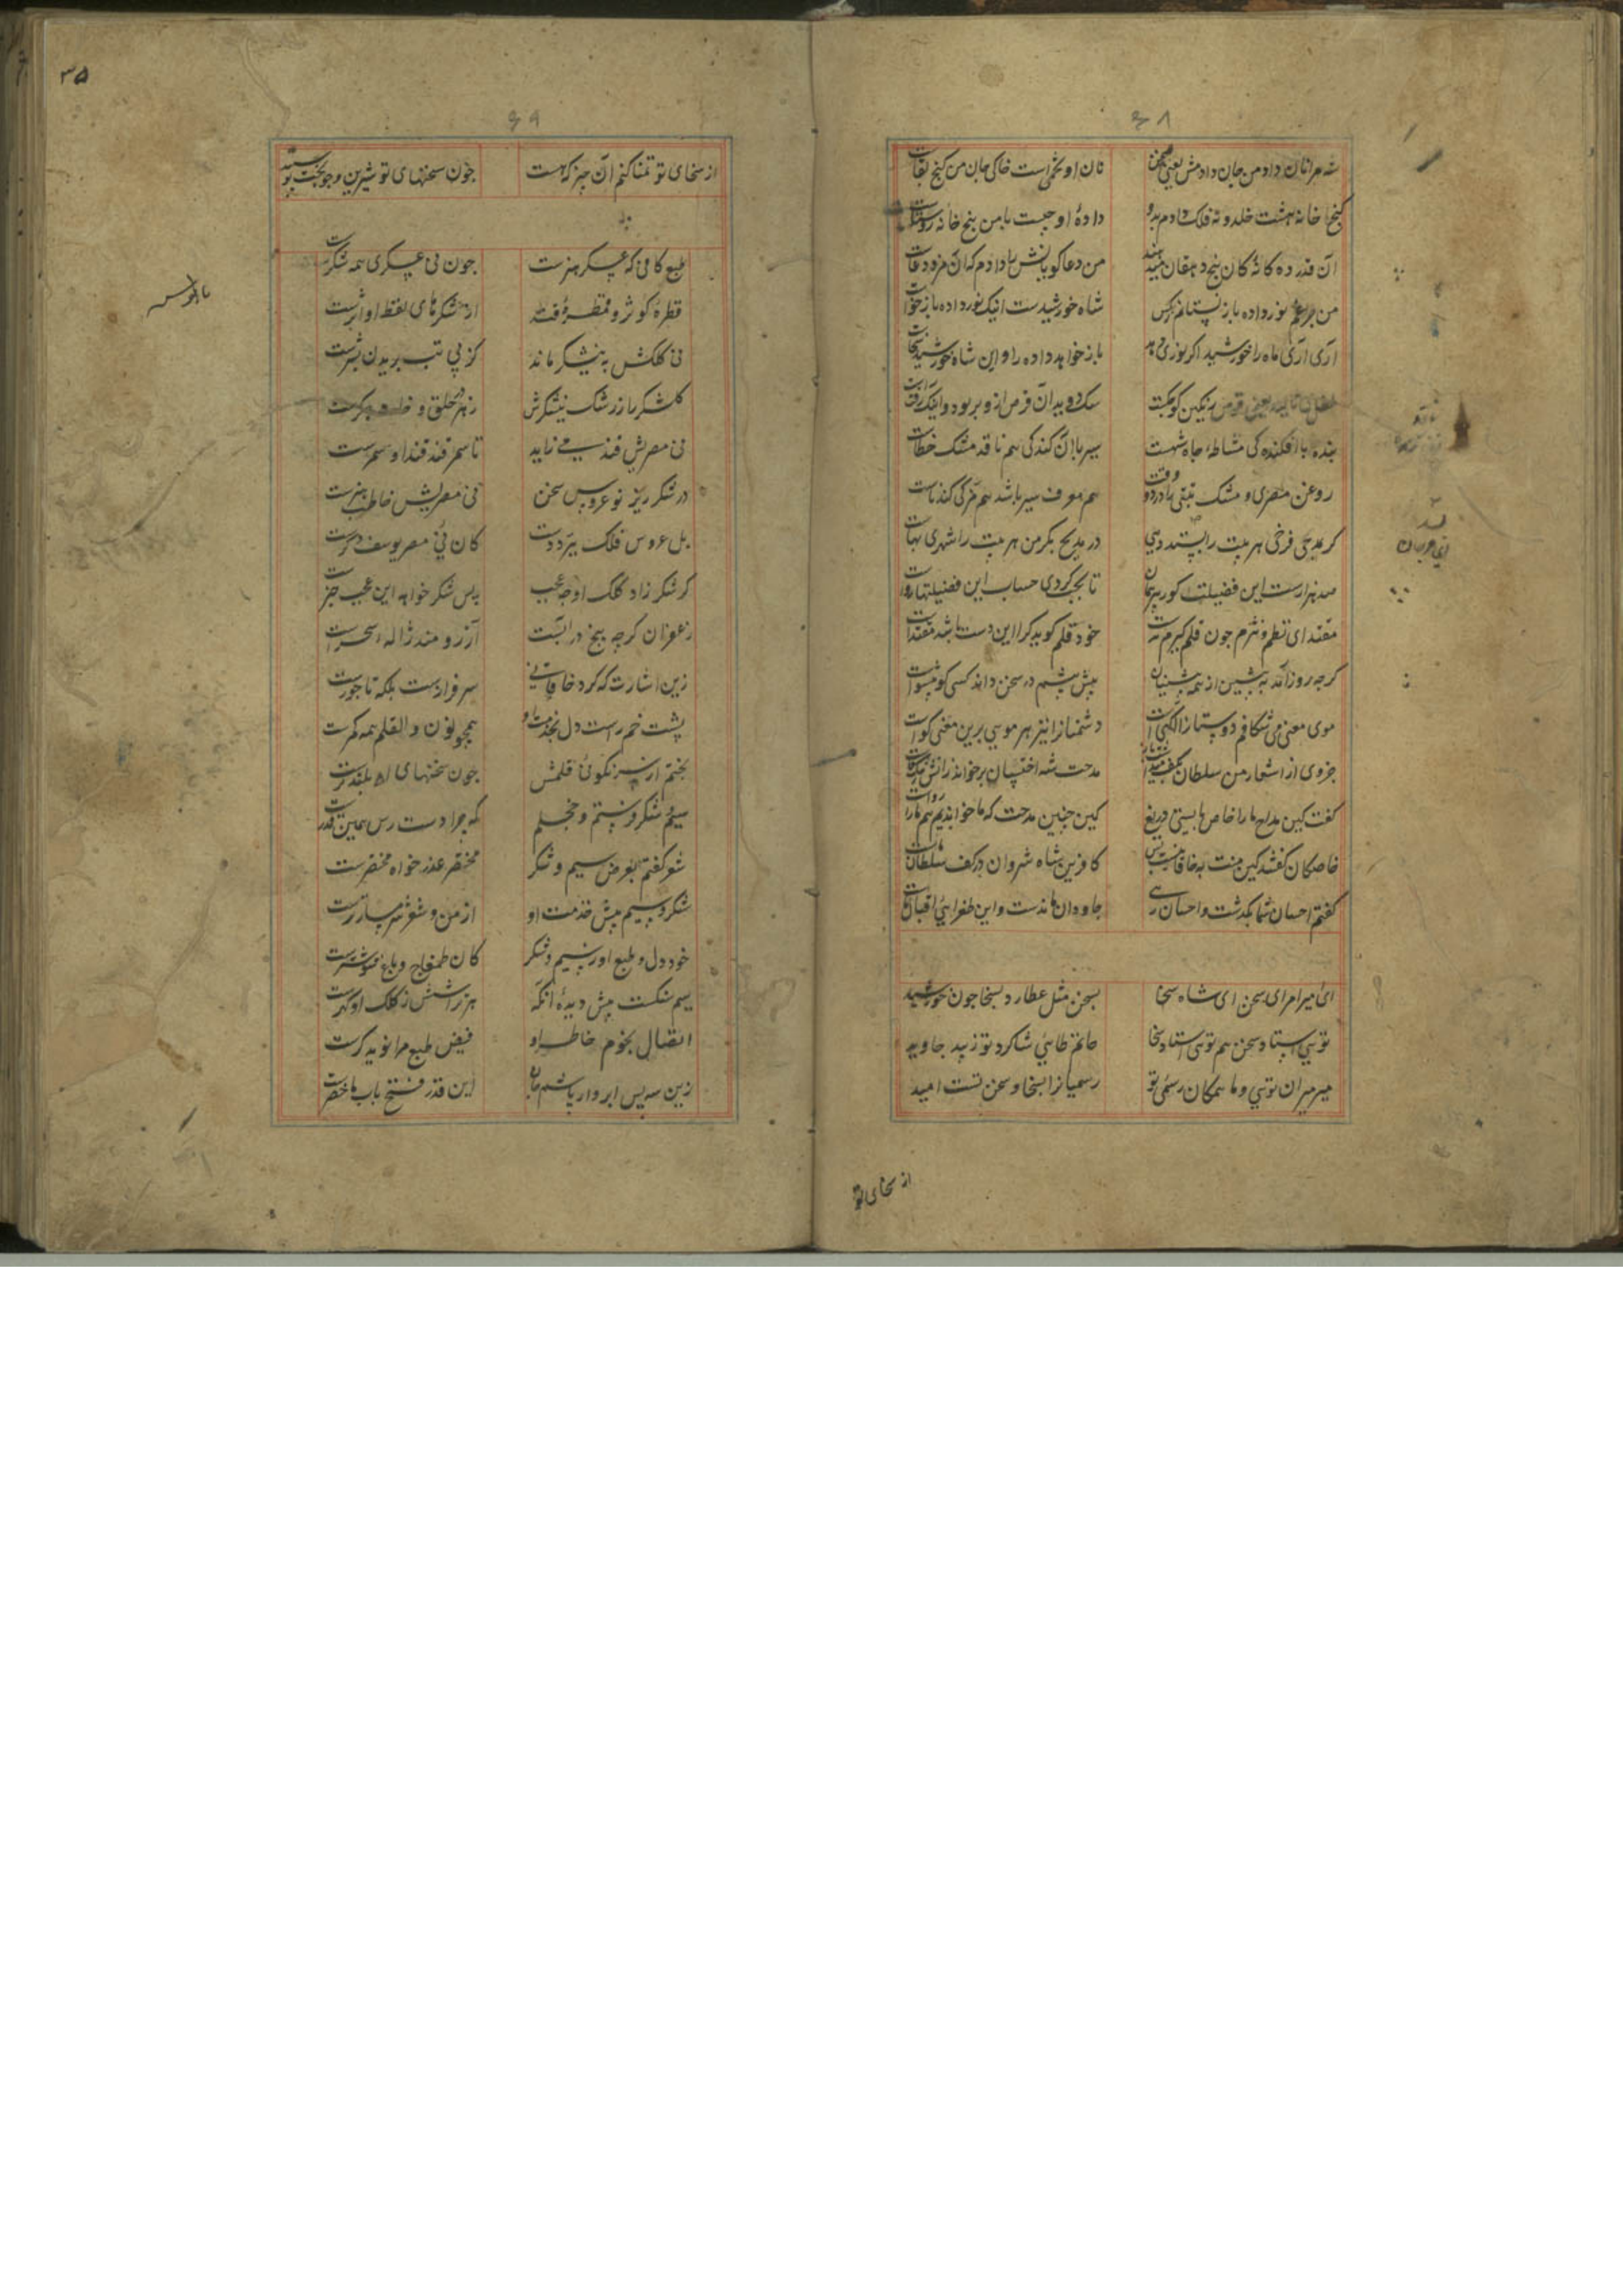 ۶۸
شه مرا نان داد من جان دادمش یعنی سخن
نان او تخمی است خاکی جان من گنج بقاست
گنج خانه هشت خلد و نه فلک دادم بدو
داده او چیست با من پنج خانه روستاست
آن قدر ده کانه کان پنج دهقان میدهند
من دعا گویانش را دادم که آن مزد دعاست
من چراغم نور داده باز نستانم ز کس
شاه خورشیدست اینک نور داده باز خواست
آری آری ماه را خورشید اگر نوری دهد
باز خواهد داده را و این شاه خورشید سخاست
سگ دوید آن قرص ازو بربود و اینک رفت راست
بنده با افکندگی مشاطهٔ جاه شهست
سیر با آن گندگی هم ناقد مشک خطاست
روغن مصری و مشک تبتی را در دو وقت
هم معرف سیر باشد هم مزکی گندناست
گر بمدحی فرخی هر بیت را بستد دهی
در مدیح بکر من هر بیت را شهری بهاست
صد هزارست این فضیلت گور پیمان
تا بجب کردی حساب این فضیلتها رواست
مقتدای نظم و نثرم چون قلم گیرم بدست
خود قلم گوید کرا این دست باشد مقتداست
گرچه روز آمد به پیشین از همه پیشینیان
پیش پیشم در سخن داند کسی کو پیشواست
موی معنی می شکافم دوستان را آگهیست
دشمنان را نیز هر مویی برین معنی گواست
جزوی از اشعار من سلطان بکف میداشت باز
مدحت شه اخستان برخواند زانش مدح خواست
گفت کین مداح ما را خاص بایستی دریغ
کین چنین مدحت که ما خواندیم هم ما را رواست
خاصگان گفتند کین منت به خاقانیست بس
کافرین شاه شروان در کف سلطان ماست
گفتم احسان شما بگذشت و احسان رهی
جاودان ماندست و این طغرایی اقبال ماست
ای امیر امرای سخن ای شاه سخا
بسخن مثل عطارد بسخا چون خورشید
تویی استاد سخن هم تویی استاد سخا
حاتم طایی شاگرد تو زیبد جاوید
میر میران تویی و ما همگان رسمی تو
رسمیان را بسخا و سخن تست امید
از سخای تو
۳۵
۶۹
از سخای تو تمنا کنم آن چیز که هست
چون سخنهای تو شیرین و چو بختت سپید
طبع کافی که عسکر هنرست
چون نی عسکری همه شکرست
قطرهٔ کوثر و قمطرهٔ قند
از شکرهای لفظ او اثرست
نی کلکش به نیشکر ماند
کز پی تب بریدن بشرست
گلشکر را ز رشک نیشکرش
زهر در حلق و خار در جگرست
نی مصریش قند می زاید
تا سمرقند قند او سمرست
در شکر ریز نو عروس سخن
نی مصریش خاطب هنرست
بل عروس فلک بیرد دست
کان نی مصر یوسف دگرست
گر شکر زاد کلک او چه عجب
پس شکر خواهد این عجیب خبرست
زعفران گرچه بیخ در آبست
آرزومند ژالهٔ سحرست
زین اشارت که کرد خاقانی
سر فرازست بلکه تاجورست
پشت خم راست دل بخدمت او
همچو نون والقلم همه کمرست
بختم ار سرنگون قلمش
چون سخنهای او بلندترست
سیم و شکر فرستم و خجلم
که چرا دست رس همین قدرست
شعر گفتم بعرض سیم و شکر
مختصر عذر خواه مختصرست
شکر و سیم پیش خدمت او
از من و شعر شرمسارترست
خود دل و طبع او ز سیم و شکر
کان طمغاج و باغ شوشترست
سیم شکست پیش دیدهٔ آنکه
هر تراشش ز کلک او گهرست
اتصال نجوم خاطر او
فیض طبع مرا نویدگرست
زین سپس ابروار پاشم جان
این قدر فتح باب ماحضرست